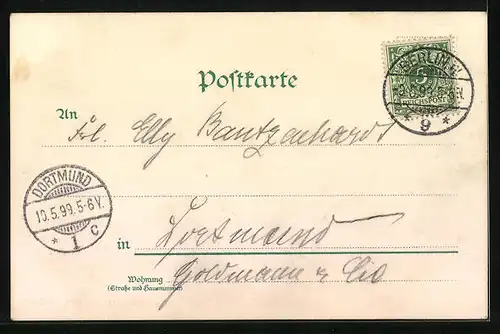 Postkarte
5
REICHSPOST
BERLIN
9
An
Frl. Elly Bantzenhardt
DORTMUND
10.5.99.5-6V.
* 1 c
in Dortmund
Wohnung
(Straße und Hausnummer)
Goldmann & Cio